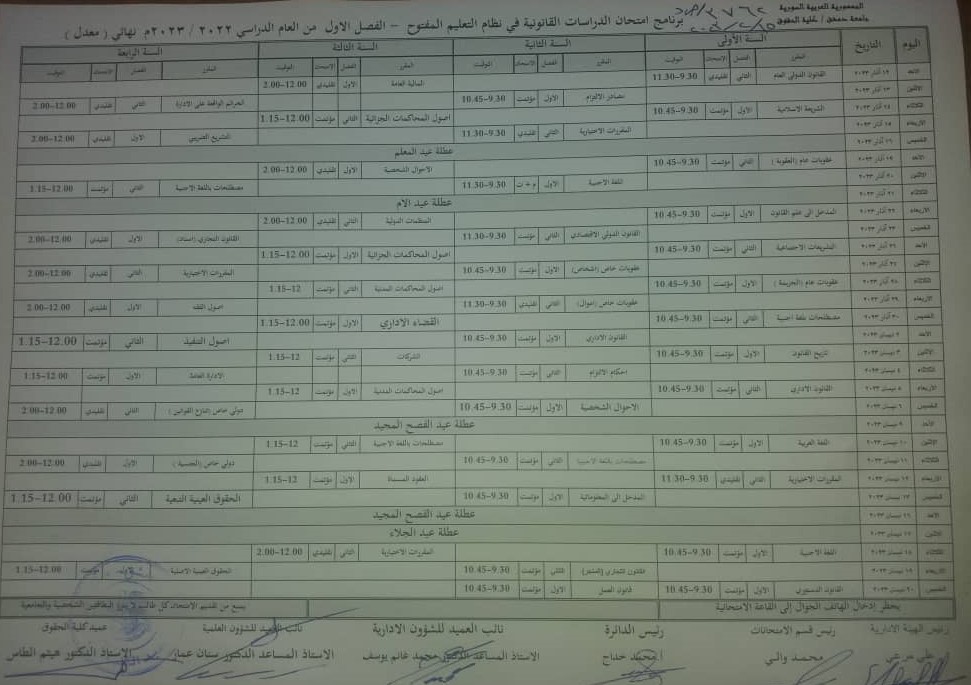 الجمهورية العربية السورية
جامعة دمشق / كلية الحقوق
برنامج امتحان الدراسات القانونية في نظام التعليم المفتوح – الفصل الاول من العام الدراسي ٢٠٢٢ / ٢٠٢٣م نهائي ( معدل )
اليوم التاريخ السنة الأولى السنة الثانية السنة الثالثة السنة الرابعة
المقرر الفصل الامتحان التوقيت المقرر الفصل الامتحان التوقيت المقرر الفصل الامتحان التوقيت المقرر الفصل الامتحان التوقيت
الاحد ١٢ آذار ٢٠٢٣ القانون الدولي العام الثاني تقليدي 9.30–11.30 المالية العامة الاول تقليدي 12.00–2.00
الاثنين ١٣ آذار ٢٠٢٣ مصادر الالتزام الاول مؤتمت 9.30–10.45 الجرائم الواقعة على الادارة الثاني تقليدي 12.00–2.00
الثلاثاء ١٤ آذار ٢٠٢٣ الشريعة الاسلامية الاول مؤتمت 9.30–10.45 اصول المحاكمات الجزائية الثاني مؤتمت 12.00–1.15
الاربعاء ١٥ آذار ٢٠٢٣ المقررات الاختيارية الثاني تقليدي 9.30–11.30 التشريع الضريبي الاول تقليدي 12.00–2.00
الخميس ١٦ آذار ٢٠٢٣ عطلة عيد المعلم
الاحد ١٩ آذار ٢٠٢٣ عقوبات عام (العقوبة ) الثاني مؤتمت 9.30–10.45 الاحوال الشخصية الاول تقليدي 12.00–2.00
الاثنين ٢٠ آذار ٢٠٢٣ اللغة الاجنبية الاول م + ت 9.30–11.30 مصطلحات باللغة الاجنبية الثاني مؤتمت 12.00–1.15
الثلاثاء ٢١ آذار ٢٠٢٣ عطلة عيد الام
الاربعاء ٢٢ آذار ٢٠٢٣ المدخل الى علم القانون الاول مؤتمت 9.30–10.45 المنظمات الدولية الثاني تقليدي 12.00–2.00
الخميس ٢٣ آذار ٢٠٢٣ القانون الدولي الاقتصادي الثاني مؤتمت 9.30–11.30 القانون التجاري (اسناد) الاول تقليدي 12.00–2.00
الاحد ٢٦ آذار ٢٠٢٣ التشريعات الاجتماعية الثاني مؤتمت 9.30–10.45 اصول المحاكمات الجزائية الاول مؤتمت 12.00–1.15
الاثنين ٢٧ آذار ٢٠٢٣ عقوبات خاص (اشخاص) الاول مؤتمت 9.30–10.45 المقررات الاختيارية الثاني تقليدي 12.00–2.00
الثلاثاء ٢٨ آذار ٢٠٢٣ عقوبات عام (الجريمة ) الاول مؤتمت 9.30–10.45 اصول المحاكمات المدنية الثاني مؤتمت 12–1.15
الاربعاء ٢٩ آذار ٢٠٢٣ عقوبات خاص (اموال) الثاني تقليدي 9.30–11.30 اصول الفقه الاول تقليدي 12.00–2.00
الخميس ٣٠ آذار ٢٠٢٣ مصطلحات بلغة اجنبية الثاني مؤتمت 9.30–10.45 القضاء الاداري الاول مؤتمت 12.00–1.15
الاحد ٢ نيسان ٢٠٢٣ القانون الاداري الاول مؤتمت 9.30–10.45 اصول التنفيذ الثاني مؤتمت 12.00–1.15
الاثنين ٣ نيسان ٢٠٢٣ تاريخ القانون الاول مؤتمت 9.30–10.45 الشركات الثاني مؤتمت 12–1.15
الثلاثاء ٤ نيسان ٢٠٢٣ احكام الالتزام الثاني مؤتمت 9.30–10.45 الادارة العامة الاول مؤتمت 12.00–1.15
الاربعاء ٥ نيسان ٢٠٢٣ القانون الاداري الثاني مؤتمت 9.30–10.45 اصول المحاكمات المدنية الاول مؤتمت 12–1.15
الخميس ٦ نيسان ٢٠٢٣ الاحوال الشخصية الاول مؤتمت 9.30–10.45 دولي خاص (تنازع القوانين ) الثاني تقليدي 12.00–2.00
الاحد ٩ نيسان ٢٠٢٣ عطلة عيد الفصح المجيد
الاثنين ١٠ نيسان ٢٠٢٣ اللغة العربية الاول مؤتمت 9.30–10.45 مصطلحات باللغة الاجنبية الثاني مؤتمت 12–1.15
الثلاثاء ١١ نيسان ٢٠٢٣ مصطلحات باللغة الاجنبية الثاني مؤتمت 9.30–10.45 دولي خاص (الجنسية ) الاول تقليدي 12.00–2.00
الاربعاء ١٢ نيسان ٢٠٢٣ المقررات الاختيارية الثاني تقليدي 9.30–11.30 العقود المسماة الاول مؤتمت 12–1.15
الخميس ١٣ نيسان ٢٠٢٣ المدخل الى المعلوماتية الاول مؤتمت 9.30–10.45 الحقوق العينية التبعية الثاني مؤتمت 12.00–1.15
الاحد ١٦ نيسان ٢٠٢٣ عطلة عيد الفصح المجيد
الاثنين ١٧ نيسان ٢٠٢٣ عطلة عيد الجلاء
الثلاثاء ١٨ نيسان ٢٠٢٣ اللغة الاجنبية الاول مؤتمت 9.30–10.45 المقررات الاختيارية الثاني تقليدي 12.00–2.00
الاربعاء ١٩ نيسان ٢٠٢٣ القانون التجاري (المتجر) الثاني مؤتمت 9.30–10.45 الحقوق العينية الاصلية الاول مؤتمت 12.00–1.15
الخميس ٢٠ نيسان ٢٠٢٣ القانون الدستوري الاول مؤتمت 9.30–10.45 قانون العمل الاول مؤتمت 9.30–10.45
يحظر ادخال الهاتف الجوال إلى القاعة الامتحانية يمنع من تقديم الامتحان كل طالب لا يبرز البطاقتين الشخصية والجامعية
رئيس الهيئة الادارية رئيس قسم الامتحانات رئيس الدائرة نائب العميد للشؤون الادارية نائب العميد للشؤون العلمية عميد كلية الحقوق
علي مرعي محمد والي محمد خداج الاستاذ المساعد الدكتور محمد غانم يوسف الاستاذ المساعد الدكتور سنان عمار الاستاذ الدكتور هيثم الطاس